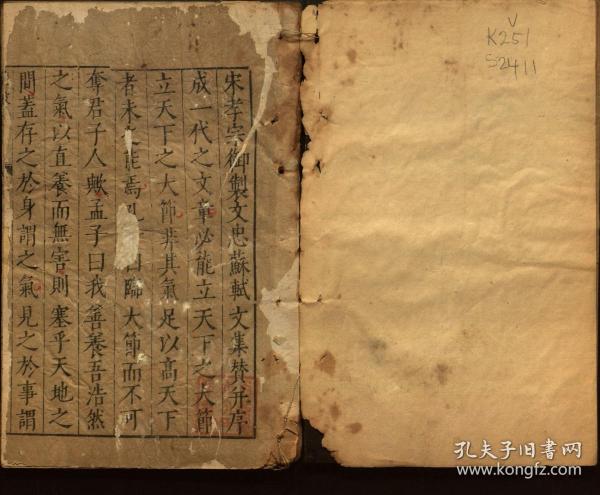 宋孝宗御製文忠蘇軾文集贊并序
成一代之文章必能立天下之大節
立天下之大節非其氣足以高天下
者未之能焉孔 曰臨大節而不可
奪君子人歟孟子曰我善養吾浩然
之氣以直養而無害則塞乎天地之
間蓋存之於身謂之氣見之於事謂
V
K251
S2411
孔夫子旧书网
www.kongfz.com